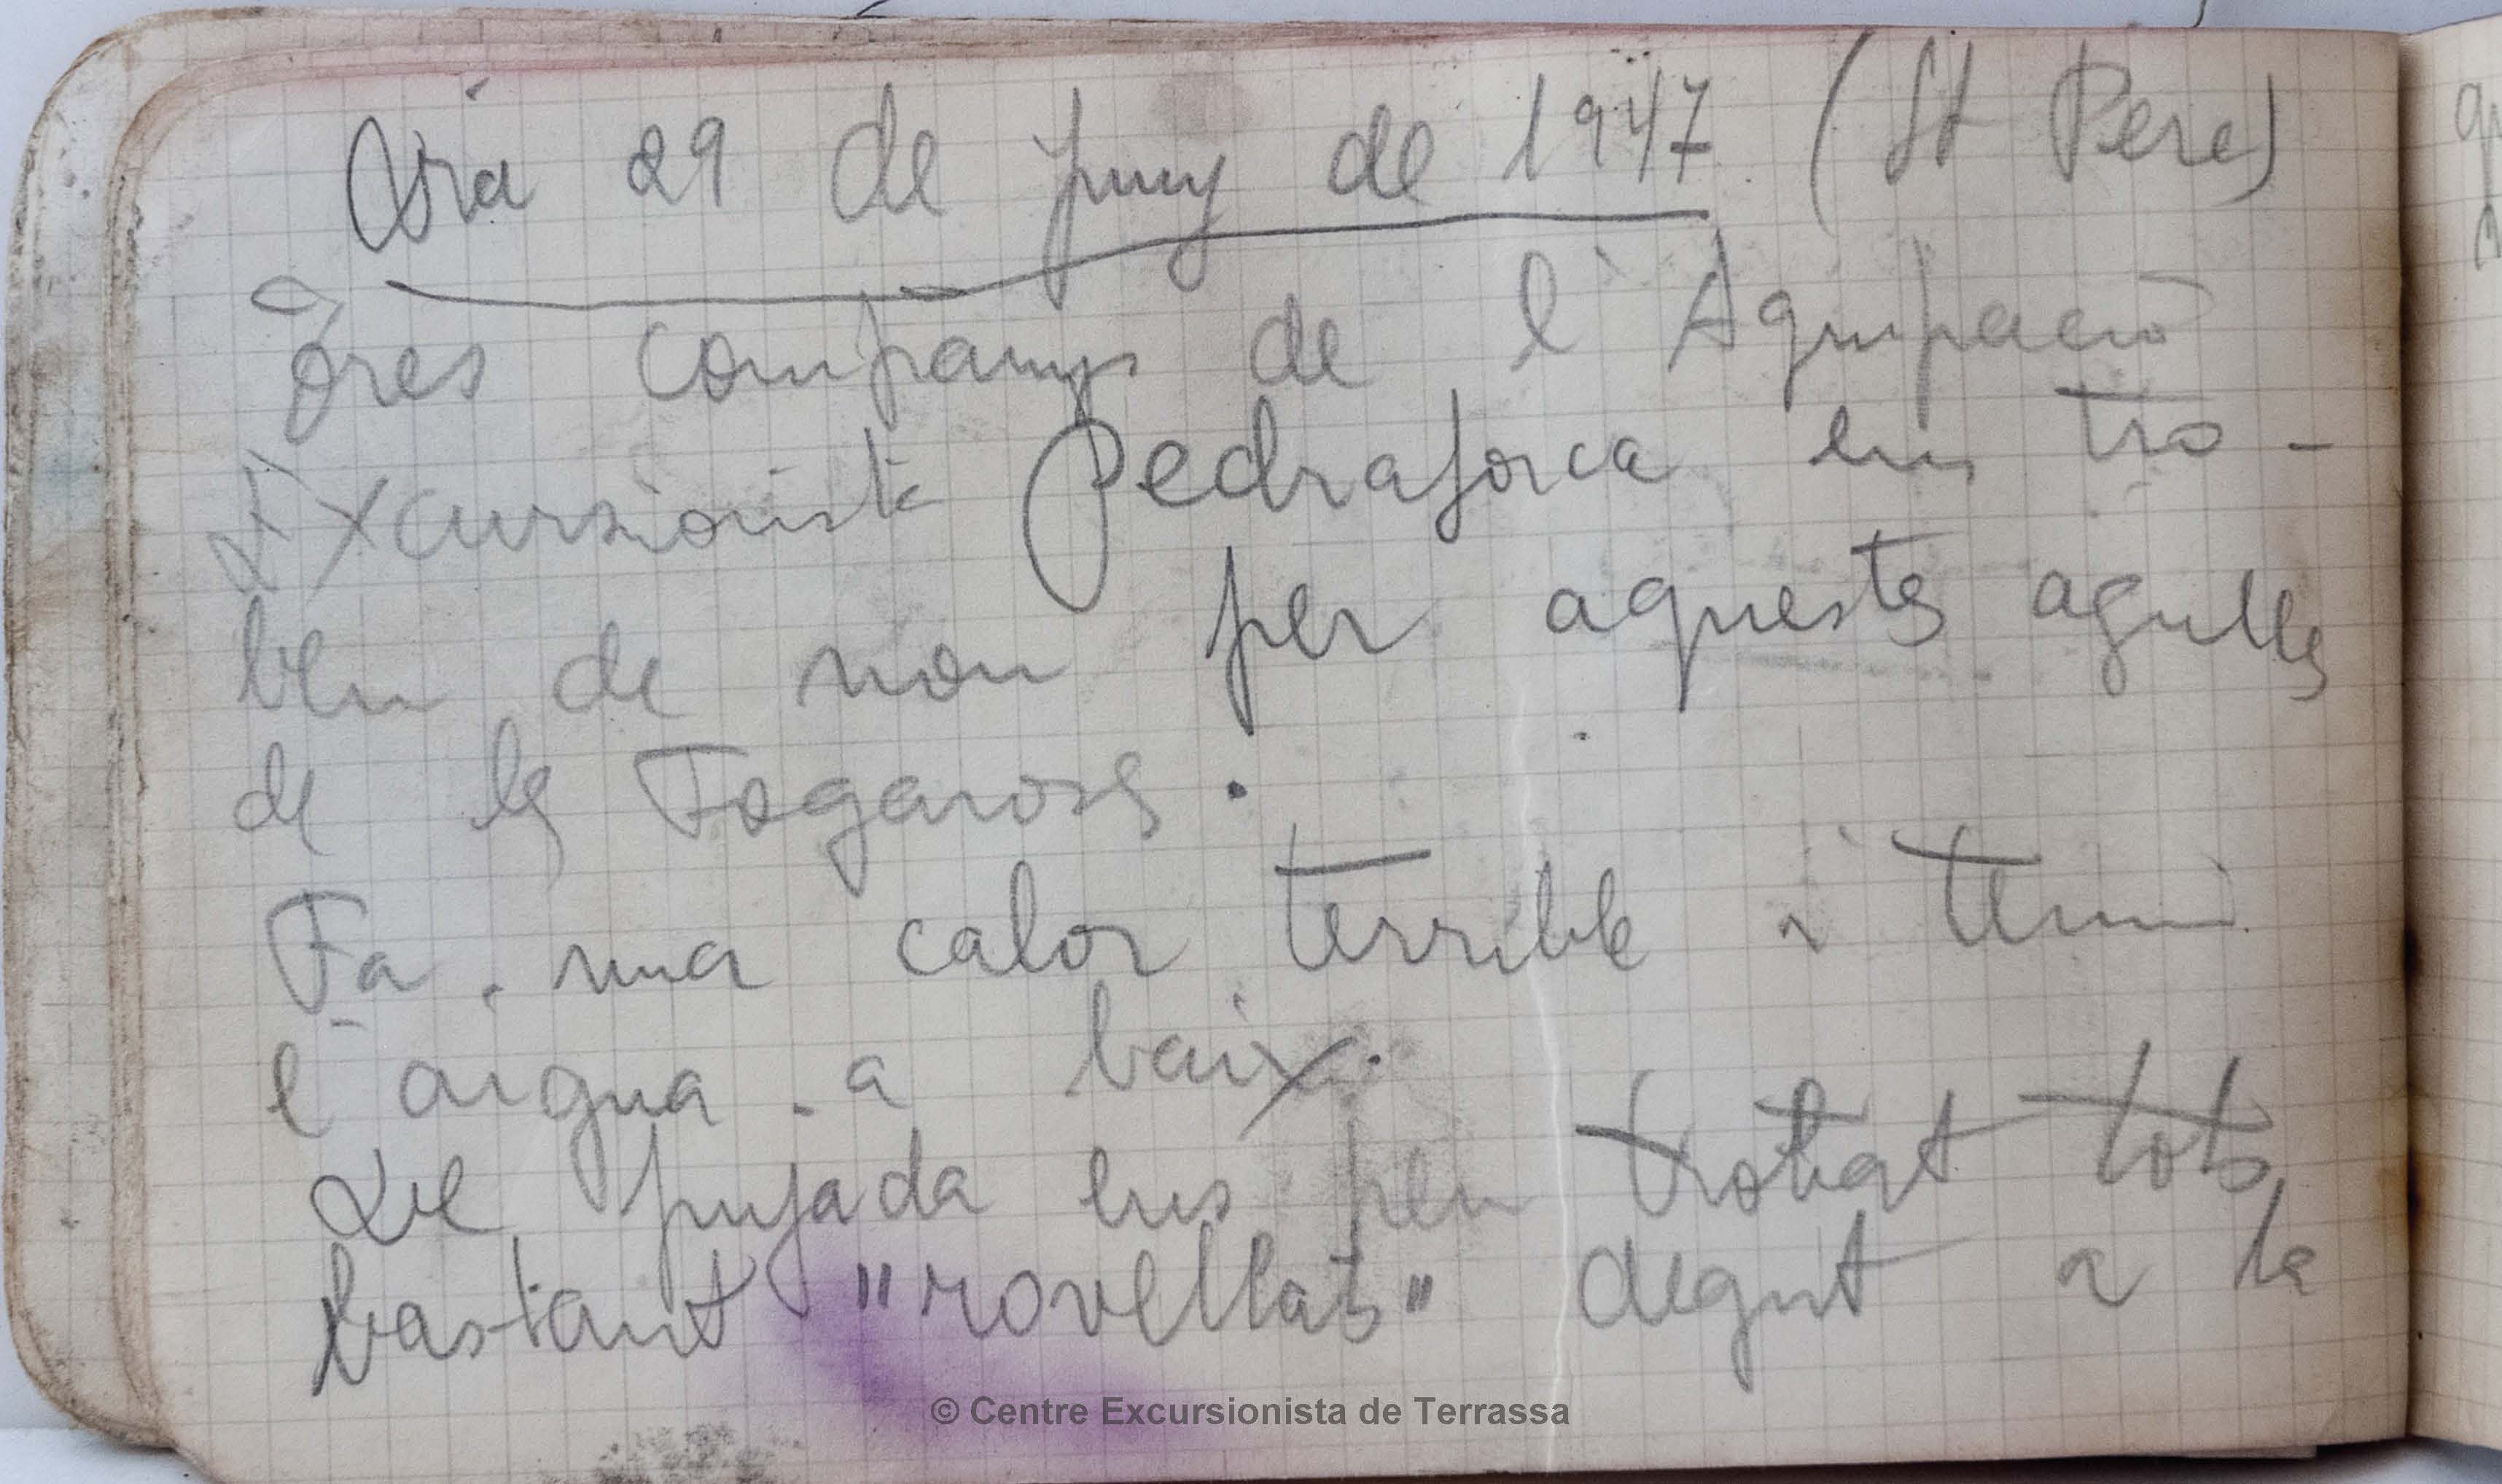 Dia 29 de juny de 1947 (St Pere)
Tres companys de l'Agrupació
Excursionista Pedraforca ens tro-
bem de nou per aquestes agulles
de les Fogaroses.
Fa una calor terrible i tenim
l'aigua a baix.
De pujada ens hem trobat tots
bastant "rovellats" degut a la
© Centre Excursionista de Terrassa